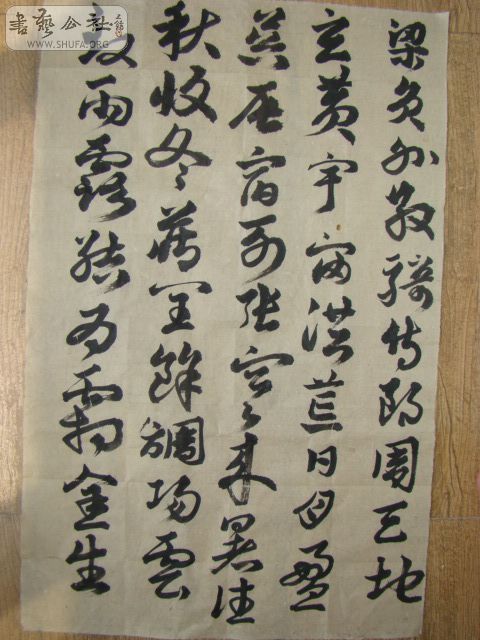 書藝公社
WWW.SHUFA.ORG
梁員外散騎侍郎周天地
玄黃宇宙洪荒日月盈
昃辰宿列張寒來暑往
秋收冬藏閏餘調陽雲
致雨露結為霜金生